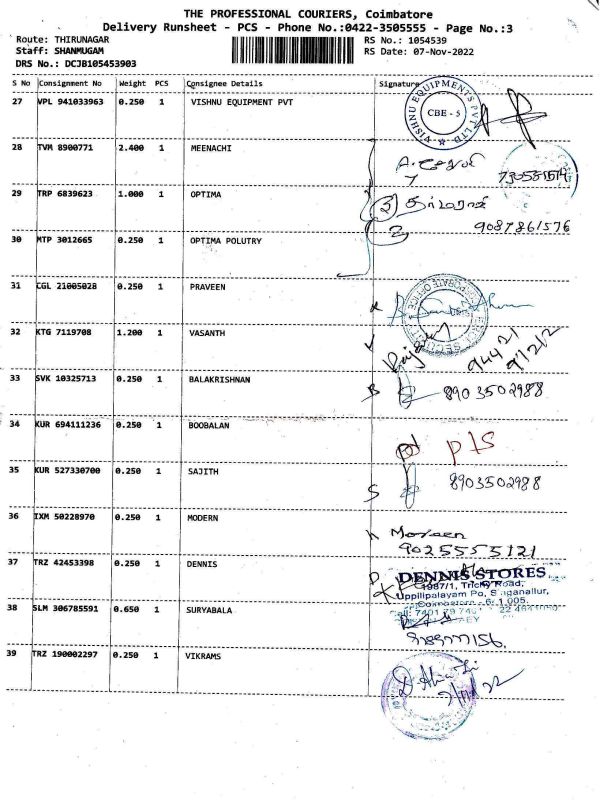 THE PROFESSIONAL COURIERS, Coimbatore
Delivery Runsheet - PCS - Phone No.:0422-3505555 - Page No.:3
Route: THIRUNAGAR RS No.: 1054539
Staff: SHANMUGAM RS Date: 07-Nov-2022
DRS No.: DCJB105453903
S No Consignment No Weight PCS Consignee Details Signature
27 VPL 941033963 0.250 1 VISHNU EQUIPMENT PVT
VISHNU EQUIPMENTS PVT LTD
CBE - 5
28 TVM 8900771 2.400 1 MEENACHI
29 TRP 6839623 1.000 1 OPTIMA
9087861576
30 MTP 3012665 0.250 1 OPTIMA POLUTRY
31 CGL 21005028 0.250 1 PRAVEEN
CORPORATE OFFICE
32 KTG 7119708 1.200 1 VASANTH
94421
33 SVK 10325713 0.250 1 BALAKRISHNAN
B 8903502988
34 KUR 694111236 0.250 1 BOOBALAN
35 KUR 527330700 0.250 1 SAJITH
S 8903502988
36 IXM 50228970 0.250 1 MODERN
9025555121
37 TRZ 42453398 0.250 1 DENNIS
DENNIS STORES
1987/1, Trichy Road,
Uppilipalayam Po, Singanallur,
Coimbatore - 641 005.
38 SLM 306785591 0.650 1 SURYABALA
39 TRZ 190002297 0.250 1 VIKRAMS